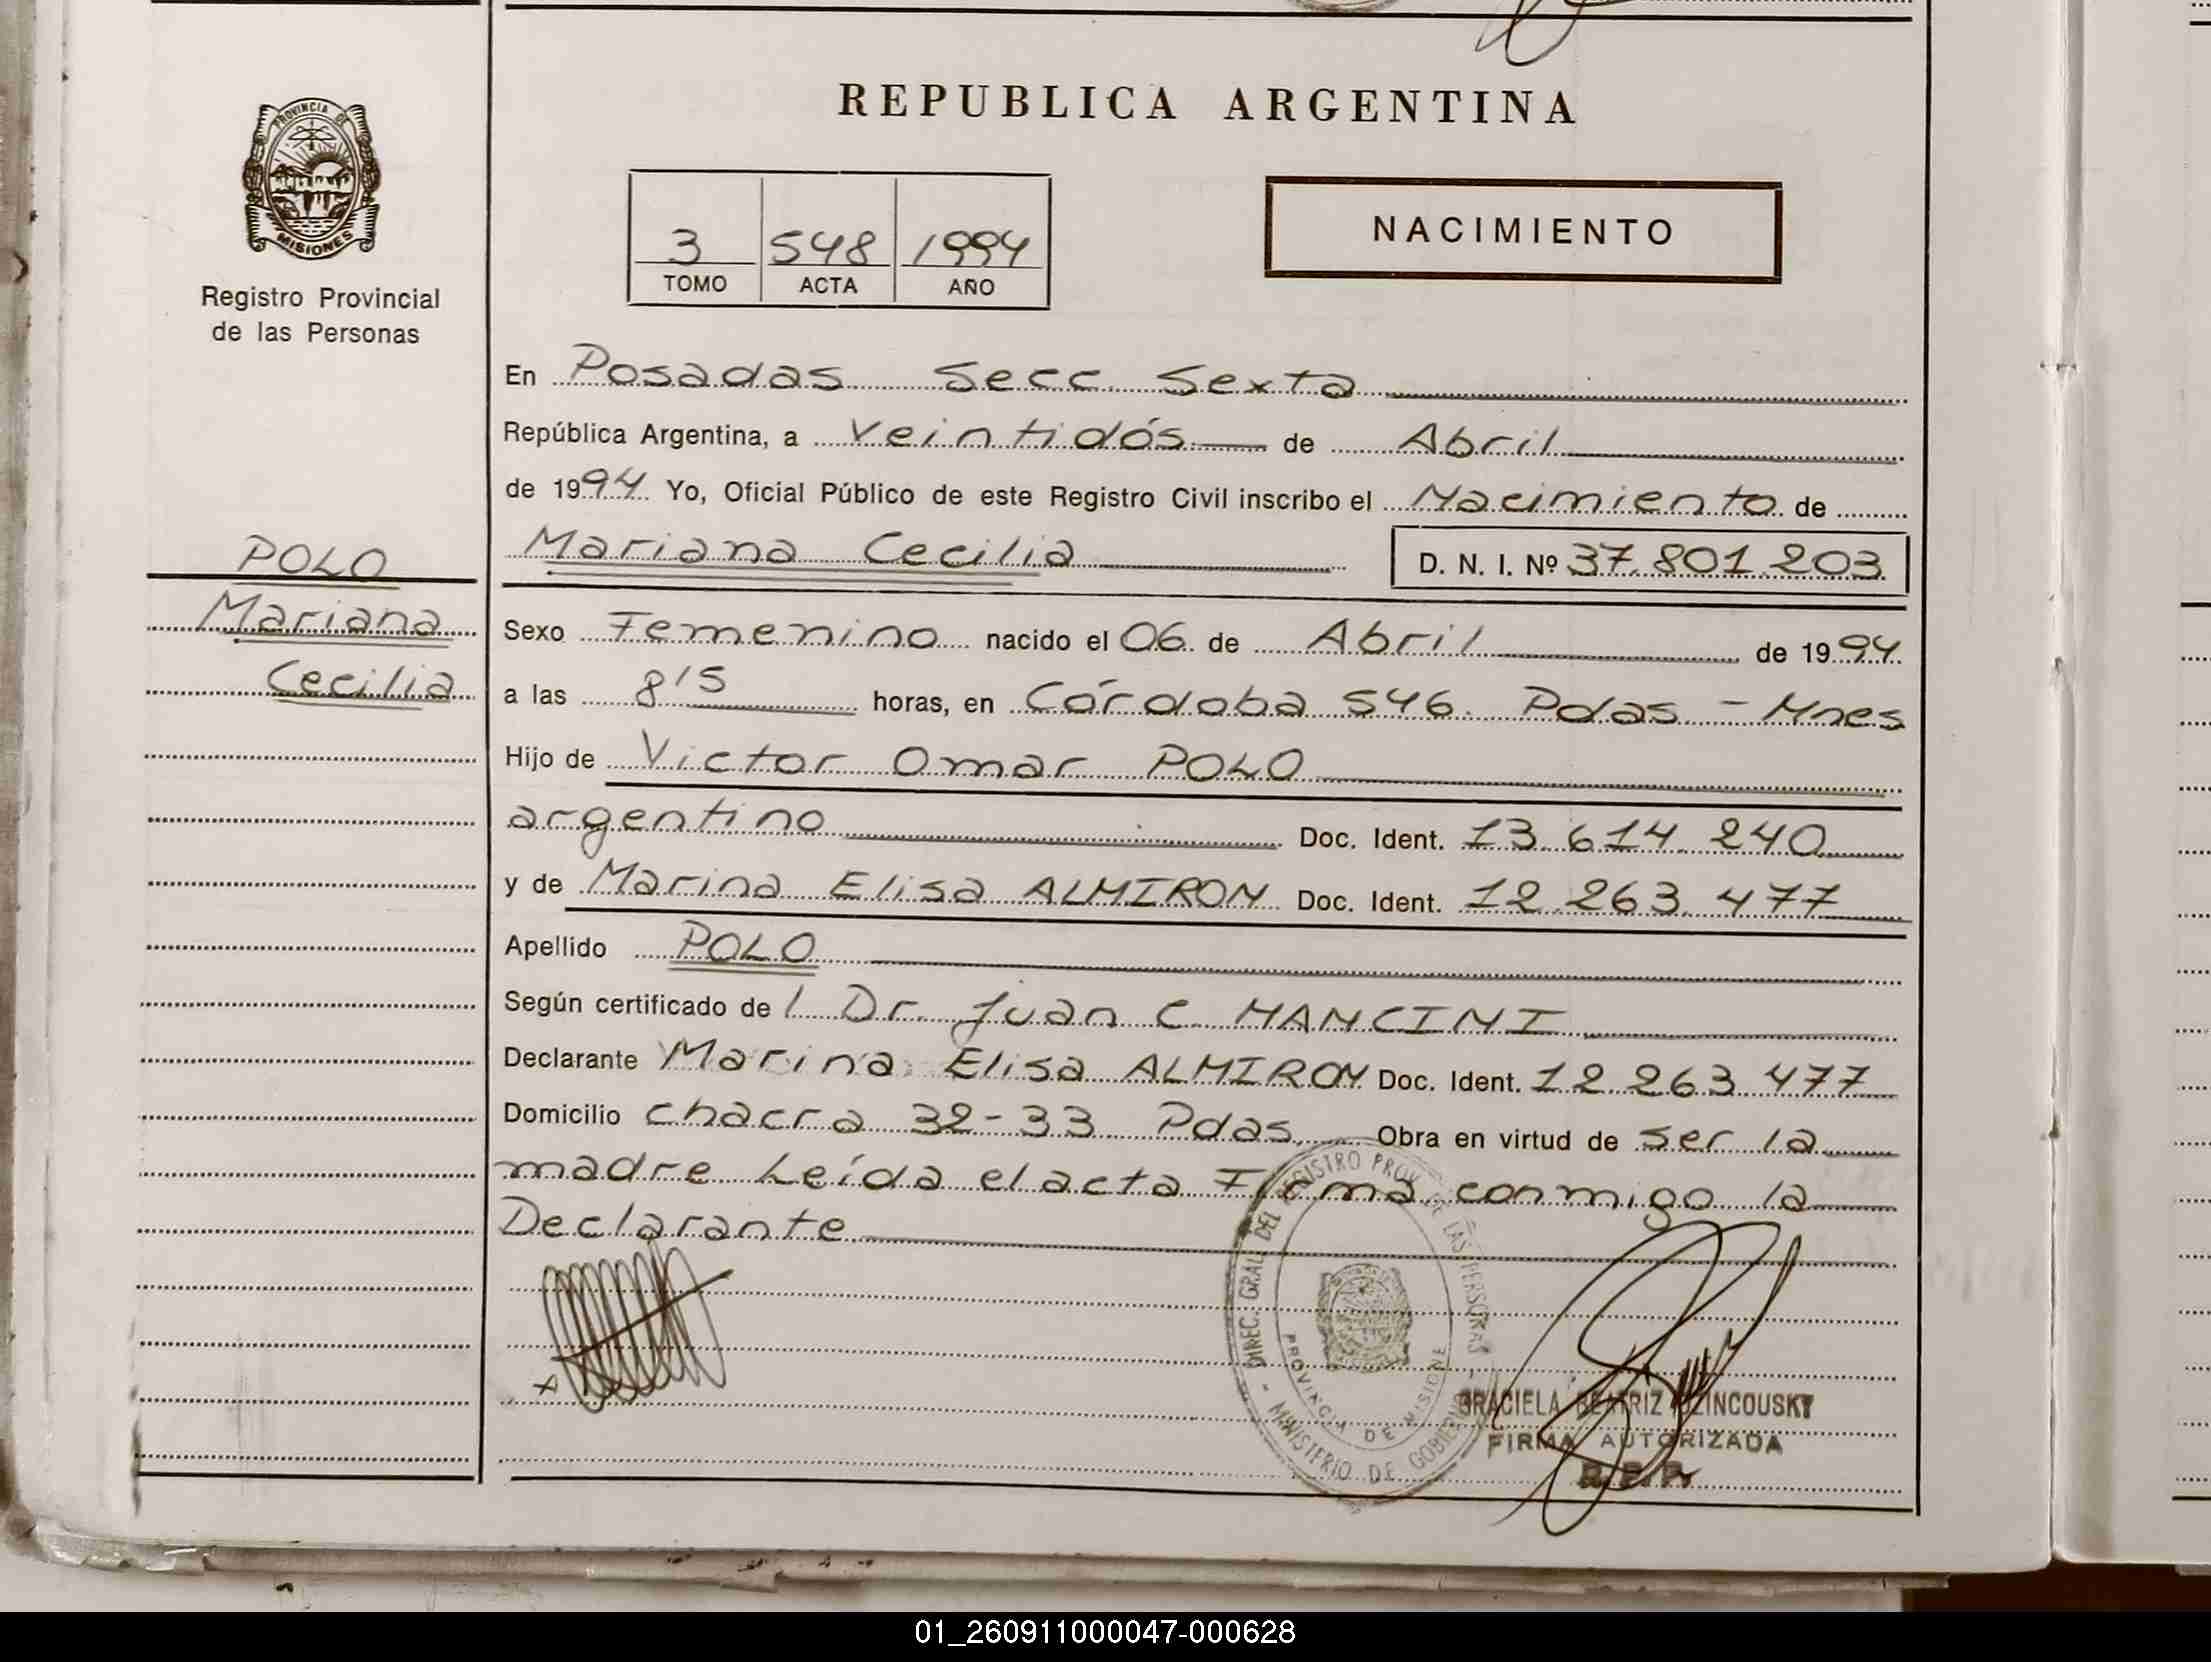 PROVINCIA DE
MISIONES
Registro Provincial
de las Personas
POLO
Mariana
Cecilia
REPUBLICA ARGENTINA
3 548 1994
TOMO ACTA AÑO
NACIMIENTO
En Posadas Secc. Sexta
República Argentina, a Veintidós de Abril
de 1994 Yo, Oficial Público de este Registro Civil inscribo el Nacimiento de
Mariana Cecilia D. N. I. Nº 37.801.203
Sexo Femenino nacido el 06 de Abril de 1994
a las 8'15 horas, en Córdoba 546. Pdas - Mnes
Hijo de Victor Omar POLO
argentino Doc. Ident. 13.614.240
y de Marina Elisa ALMIRON Doc. Ident. 12.263.477
Apellido POLO
Según certificado de l Dr. Juan C. MANCINI
Declarante Marina Elisa ALMIRON Doc. Ident. 12.263.477
Domicilio Chacra 32-33 Pdas. Obra en virtud de ser la
madre Leída el acta Firma conmigo la
Declarante
DIREC. GRAL. DEL REGISTRO PROV. DE LAS PERSONAS - MINISTERIO DE GOBIERNO -
PROVINCIA DE MISIONES
GRACIELA BEATRIZ
FIRMA AUTORIZADA
R.P.P.
01_260911000047-000628